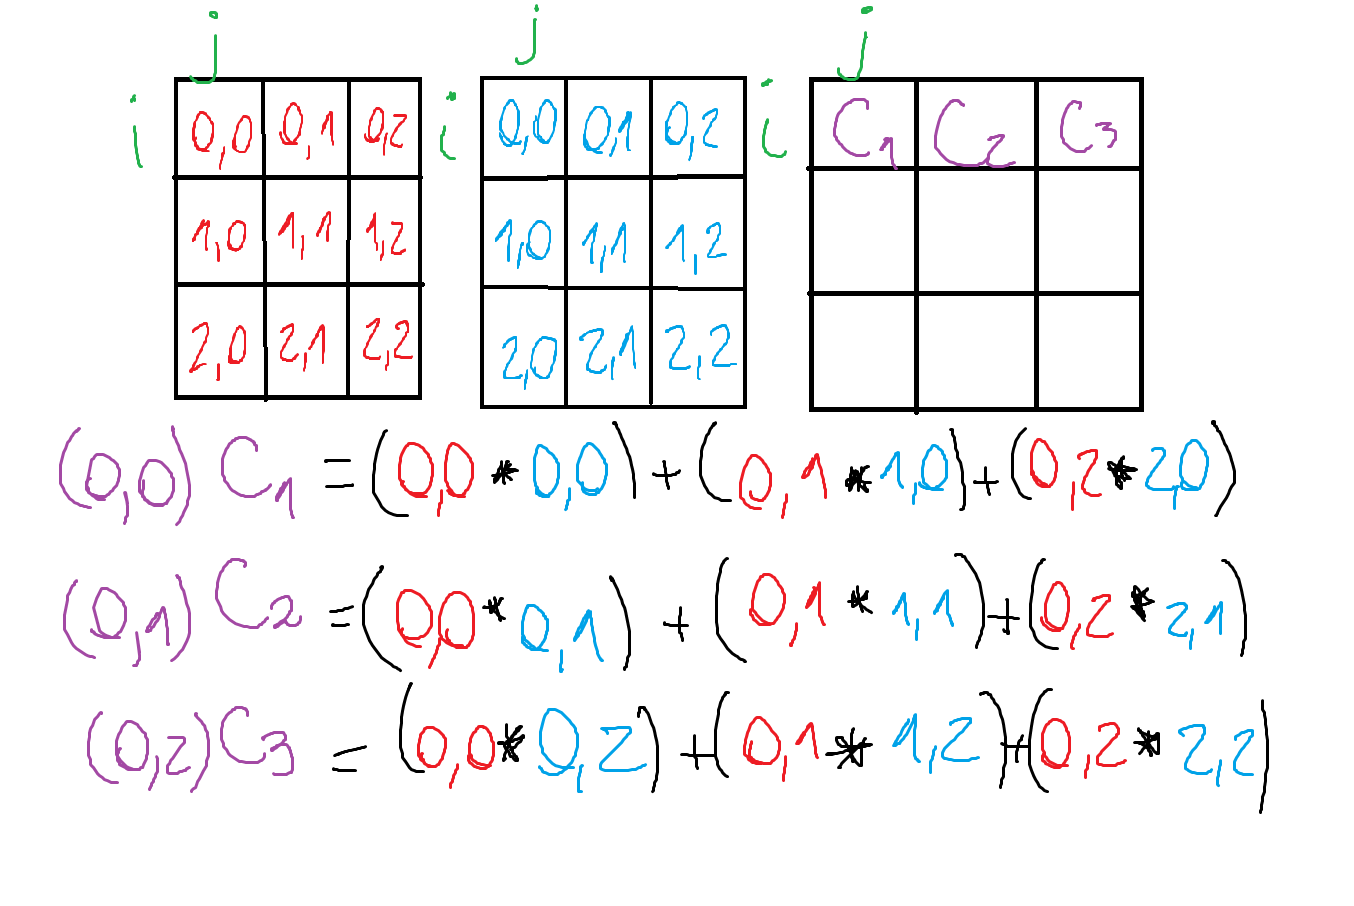 j j j
i 0,0 0,1 0,2 i 0,0 0,1 0,2 i C1 C2 C3
1,0 1,1 1,2 1,0 1,1 1,2
2,0 2,1 2,2 2,0 2,1 2,2
(0,0) C1 = (0,0 * 0,0) + (0,1 * 1,0) + (0,2 * 2,0)
(0,1) C2 = (0,0 * 0,1) + (0,1 * 1,1) + (0,2 * 2,1)
(0,2) C3 = (0,0 * 0,2) + (0,1 * 1,2) + (0,2 * 2,2)